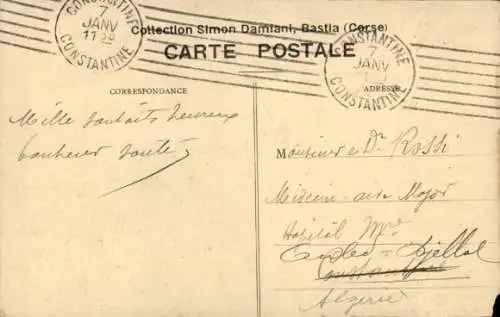 CONSTANTINE
7
JANV
CONSTANTINE
Collection Simon Damiani, Bastia (Corse)
CARTE POSTALE
CONSTANTINE
7
JANV
CONSTANTINE
CORRESPONDANCE
ADRESSE
Mille souhaits heureux
bonheur santé
Monsieur Dr Rossi
Médecin aide Major
Hôpital Mre
Constantine
Algérie